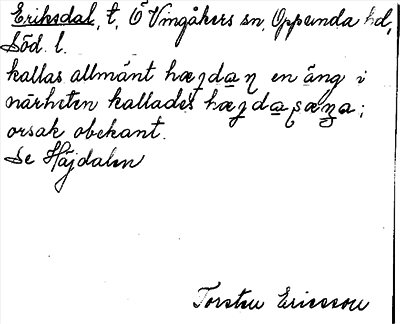 Eriksdal, t, Ö Vingåkers sn, Oppunda hd,
Söd. l.
kallas allmänt hæɟdaɳ en äng i
närheten kallades
orsak obekant.
Se Häjdalen
Torsten Ericsson